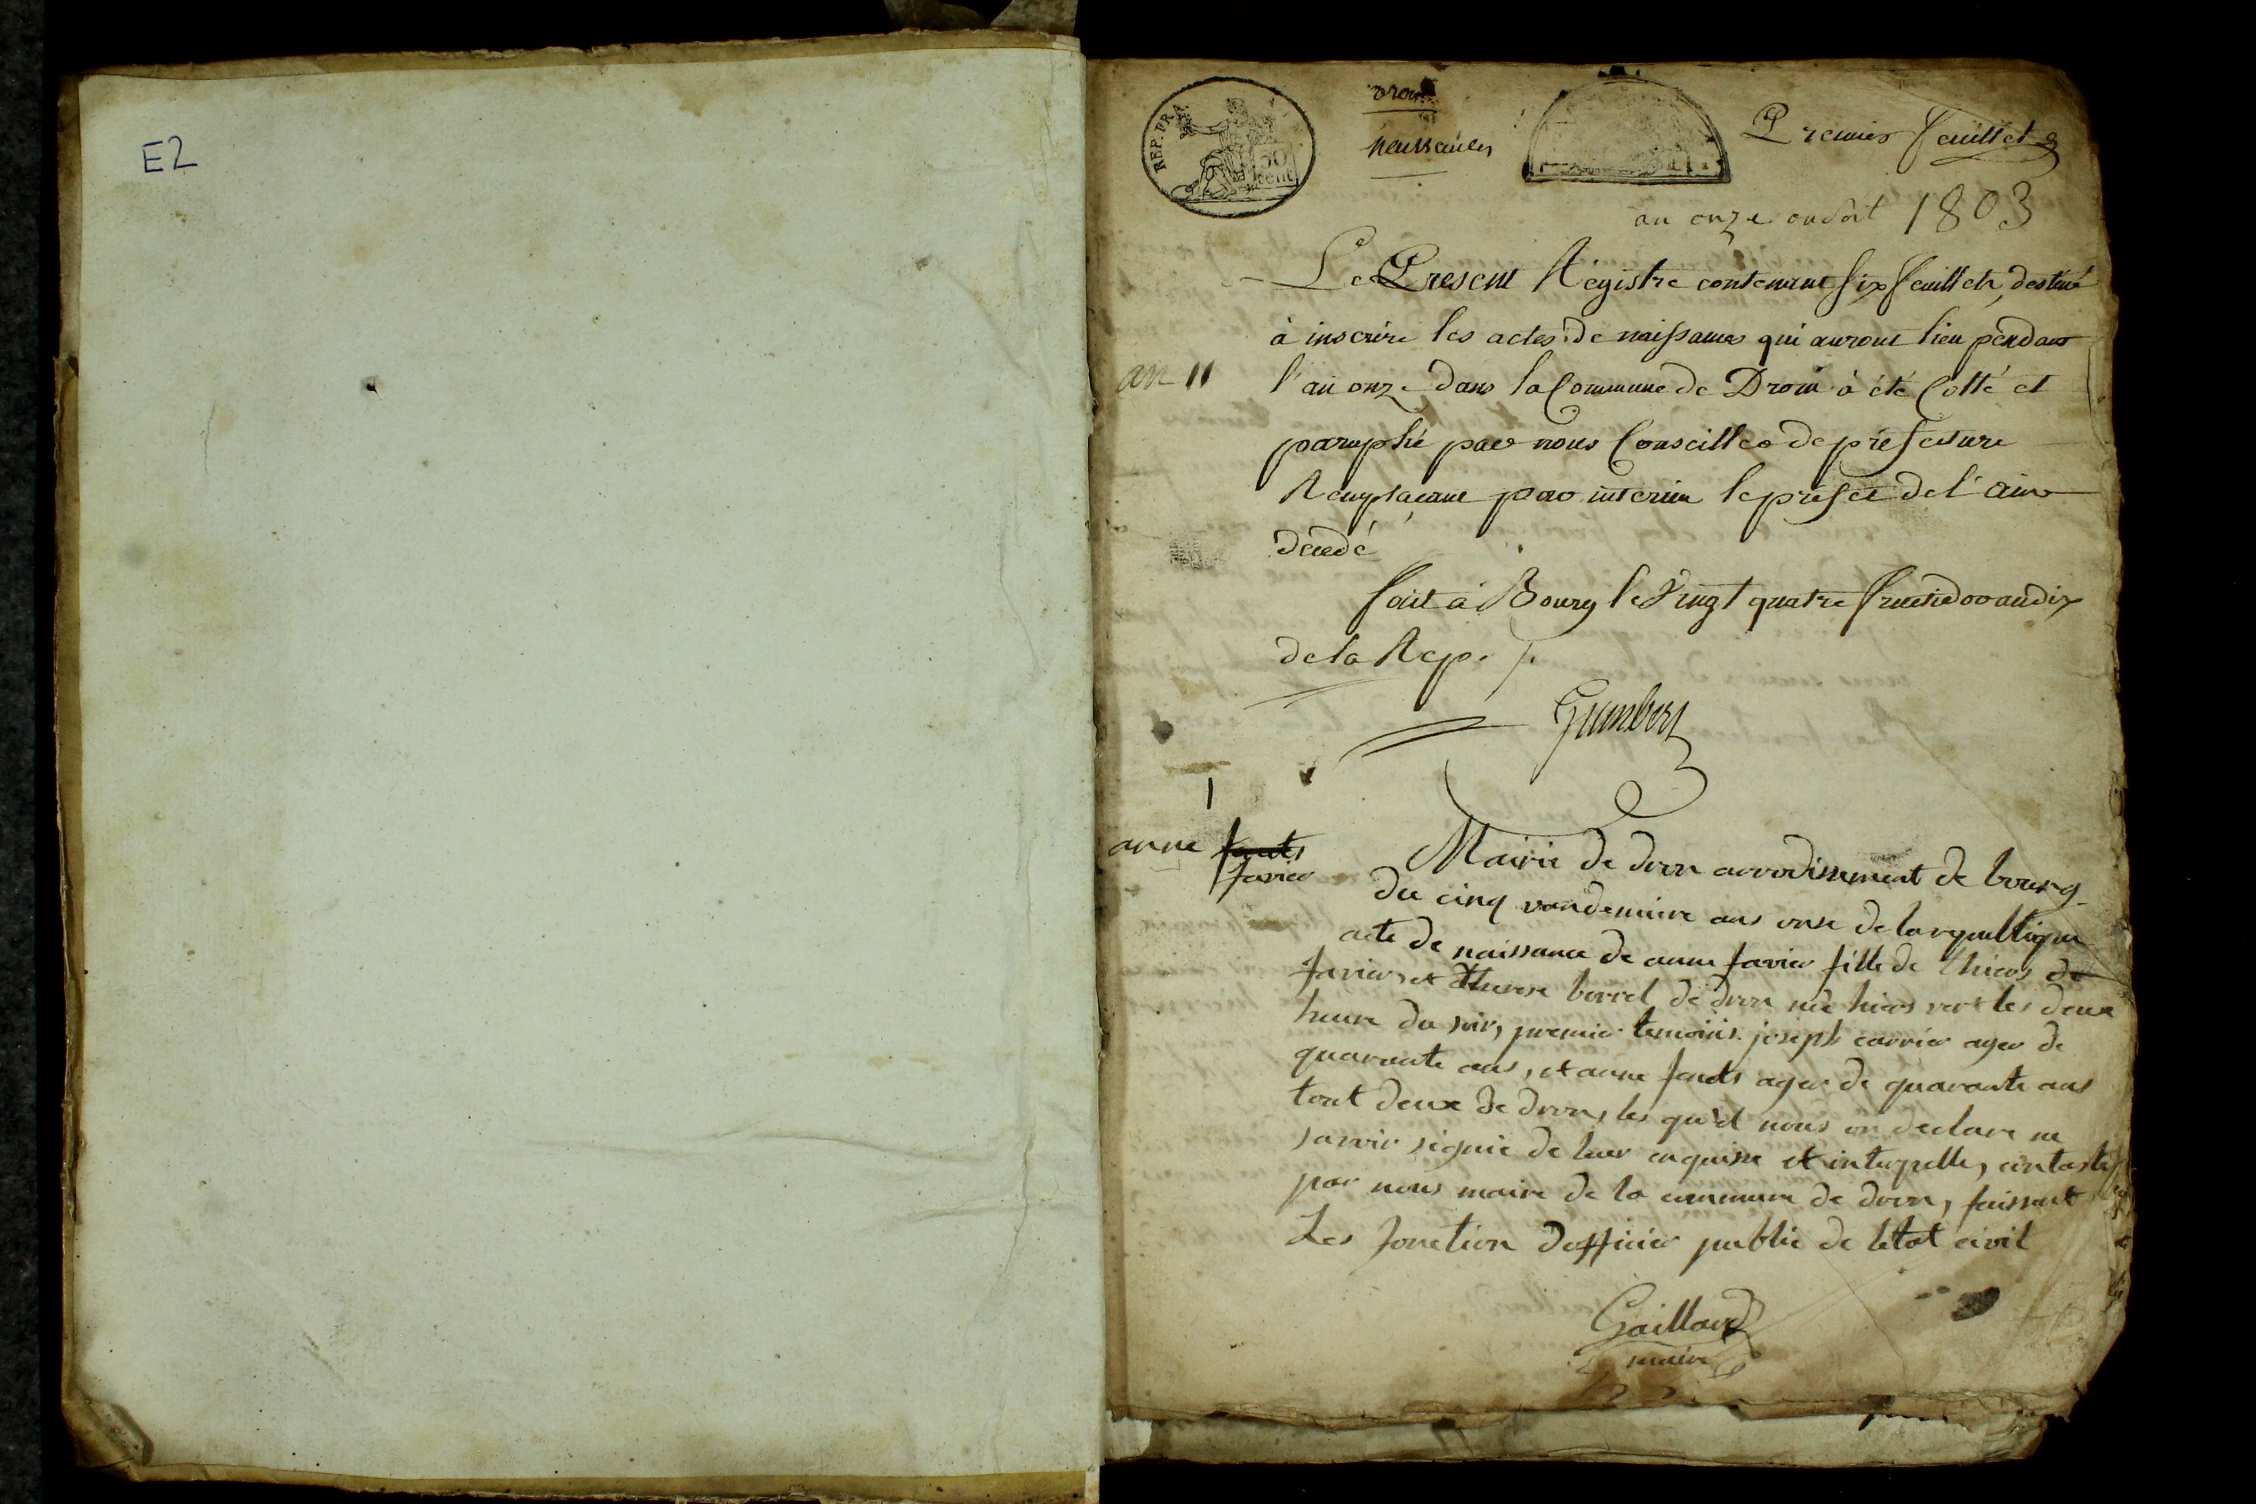 E2
REP. FRA.
50
cent
drom
naissances
Premier feuillet
an onze ou soit 1803
Le Present Régistre contenant six feuillets, destiné
à inscrire les actes de naissances qui auront lieu pendant
an 11
l'an onze dans la Commune de Drom à été Cotté et
paraphé par nous Conseiller de préfecture
Remplaçant par interim le préfet de l'ain
décédé
fait à Bourg le Vingt quatre fructidor an dix
de la Rep. f.
Gumbert
1
anne fonts
favier
Mairie de dron arrodissement de bourg
du cinq vandemiere ans onse de la republique
acte de naissance de anne favier fille de de
favier, et therese borrel de dron née hier vers les deux
heure du soir, premier temoins joseph carrier ager de
quarante ans, et anne fonts ager de quarante ans
tout deux de dron, les qu'el nous on declare ne
savoir signie de luer enquise et interpelle, contaste
par nous maire de la commune de dron, faissant
Les fonction dofficier public de letat civil
Gaillard
maire